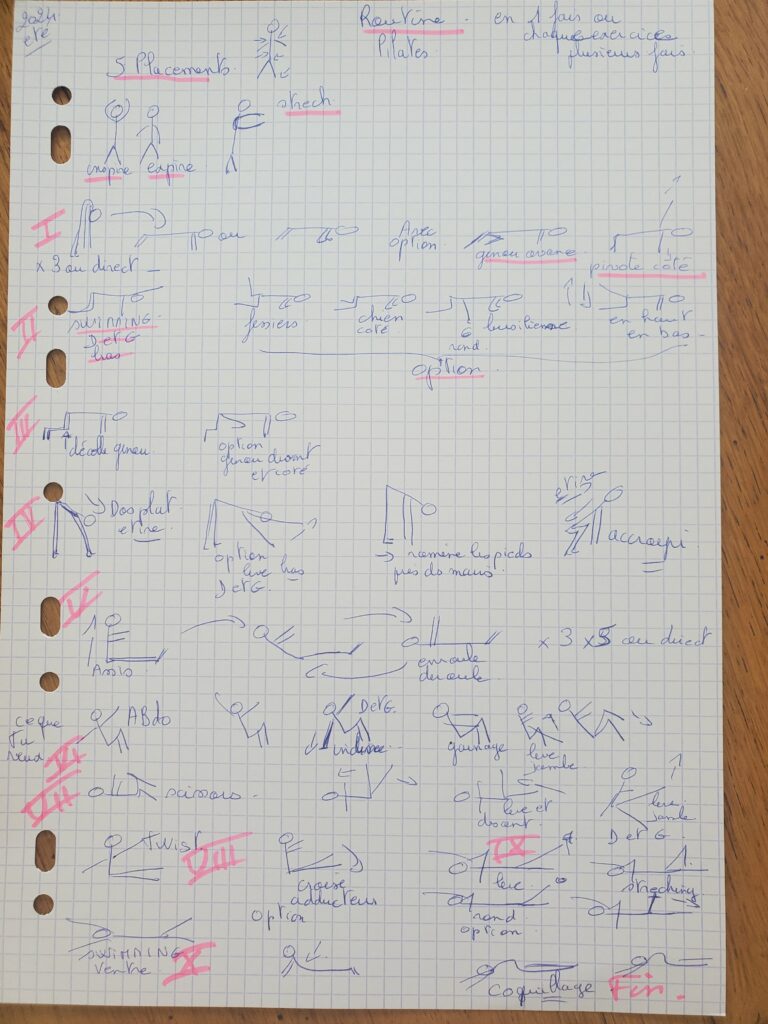 2024
été
Routine . en 1 fois ou
Pilates chaque exercice
plusieurs fois.
5 Placements.
strech
inspire expire
I
ou
Avec
option
genou avant
pivote côté
x 3 ou direct
II
SWIMMING
D et G
bas
fessiers
chien
côté
6
rond
en haut
en bas
option
III
décolle genou
option
genou devant
et coté
IV
Dos plat
etire
option
leve bas
D et G.
ramène les pieds
près des mains.
etire
accroupi
V
Assis
enroule
deroule
x 3 x 5 ou direct
ce que
Tu
veux
VI
ABdo
D et G.
incline
gainage
leve
jambe
VII
scissors
leve et
descent
leve
jambe
D et G
Twist
VIII
croise
adducteurs
option
IX
leve
rond
option
streching
SWIMMING
ventre
X
coquillage
Fin.